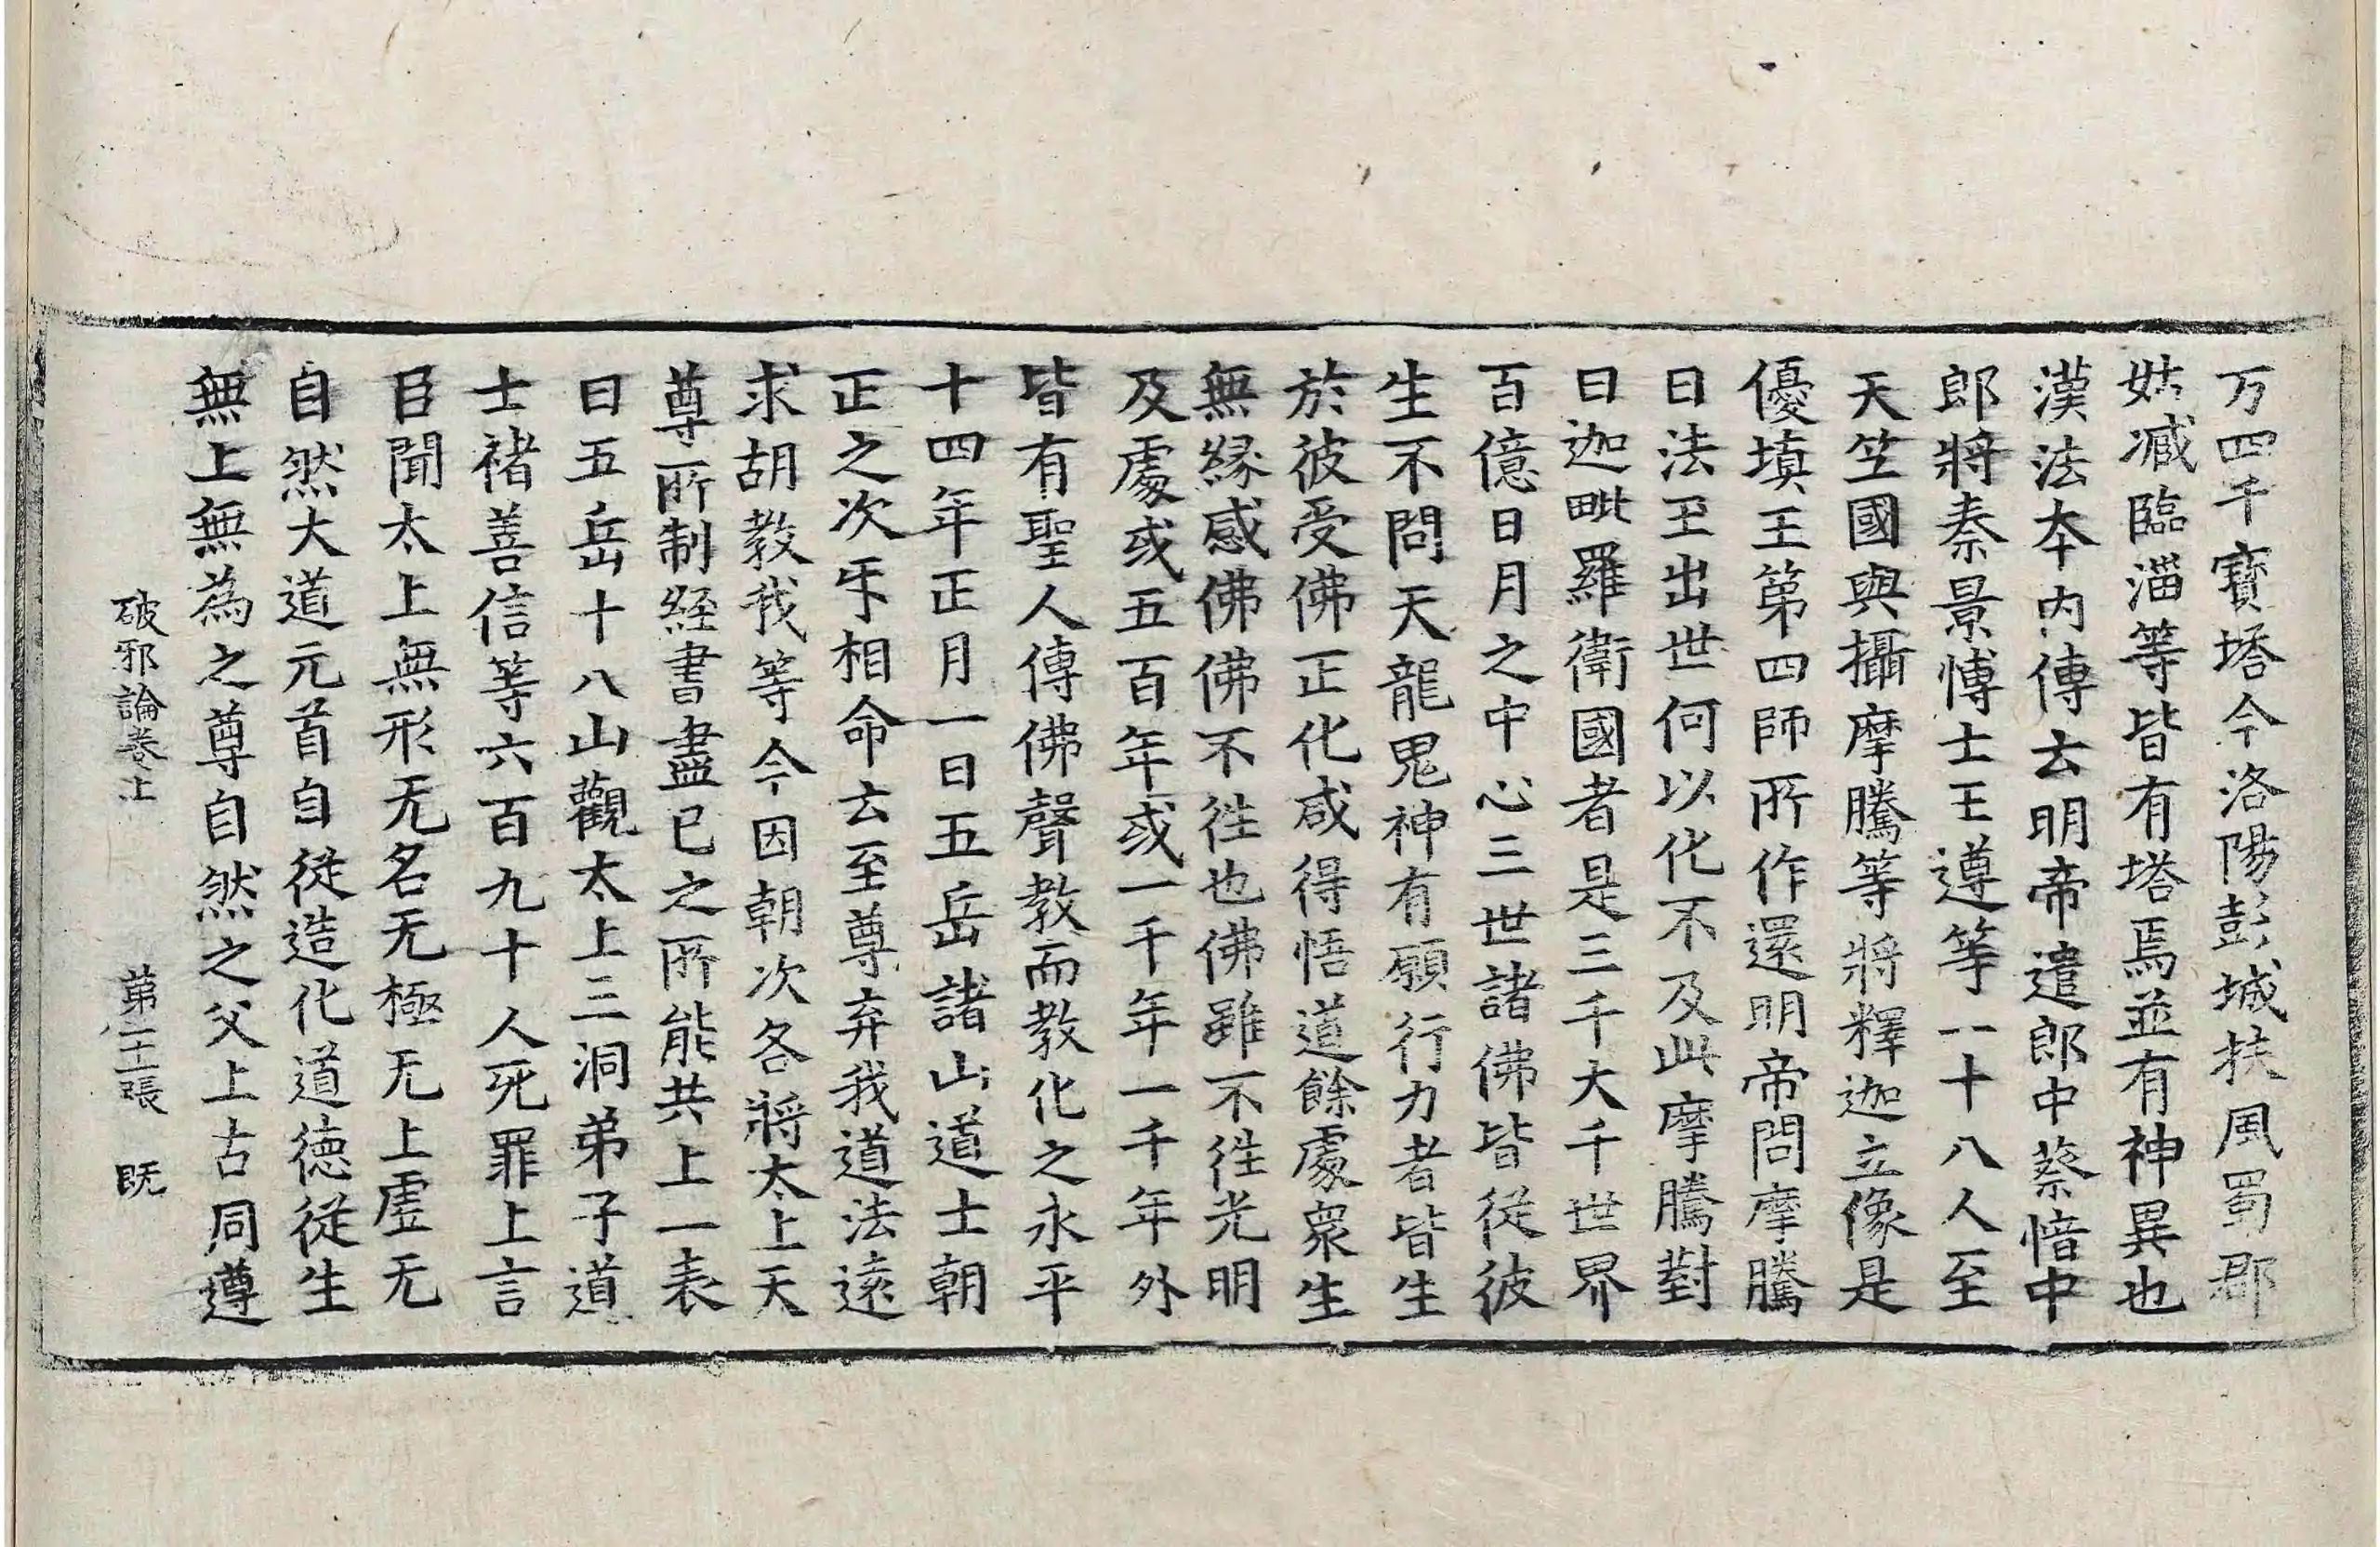 万四千寶塔今洛陽彭城扶風蜀郡
姑臧臨淄等皆有塔焉並有神異也
漢法本內傳云明帝遣郎中蔡愔中
郎將秦景愽士王遵等一十八人至
天竺國與攝摩騰等將釋迦立像是
優填王第四師所作還明帝問摩騰
曰法王出世何以化不及此摩騰對
曰迦毗羅衛國者是三千大千世界
百億日月之中心三世諸佛皆從彼
生不問天龍鬼神有願行力者皆生
於彼受佛正化咸得悟道餘處衆生
無緣感佛佛不徃也佛雖不徃光明
及處或五百年或一千年一千年外
皆有聖人傳佛聲教而教化之永平
十四年正月一日五岳諸山道士朝
正之次㸦相命云至尊弃我道法遠
求胡教我等今因朝次各將太上天
尊所制經書盡已之所能共上一表
曰五岳十八山觀太上三洞弟子道
士禇善信等六百九十人死罪上言
臣聞太上無形无名无極无上虛无
自然大道元首自從造化道德從生
無上無為之尊自然之父上古同遵
破邪論卷上 第二十二張 旣